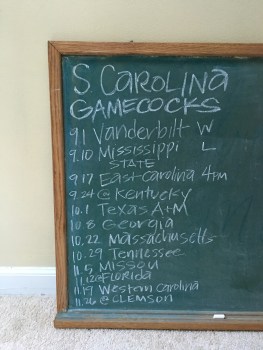 S. CAROLINA
GAMECOCKS
9.1 Vanderbilt W
9.10 Mississippi L
STATE
9.17 East Carolina 4pm
9.24 @ Kentucky
10.1 Texas A+M
10.8 Georgia
10.22 Massachusetts
10.29 Tennessee
11.5 Missou
11.12 @ Florida
11.19 Western Carolina
11.26 @ CLEMSON